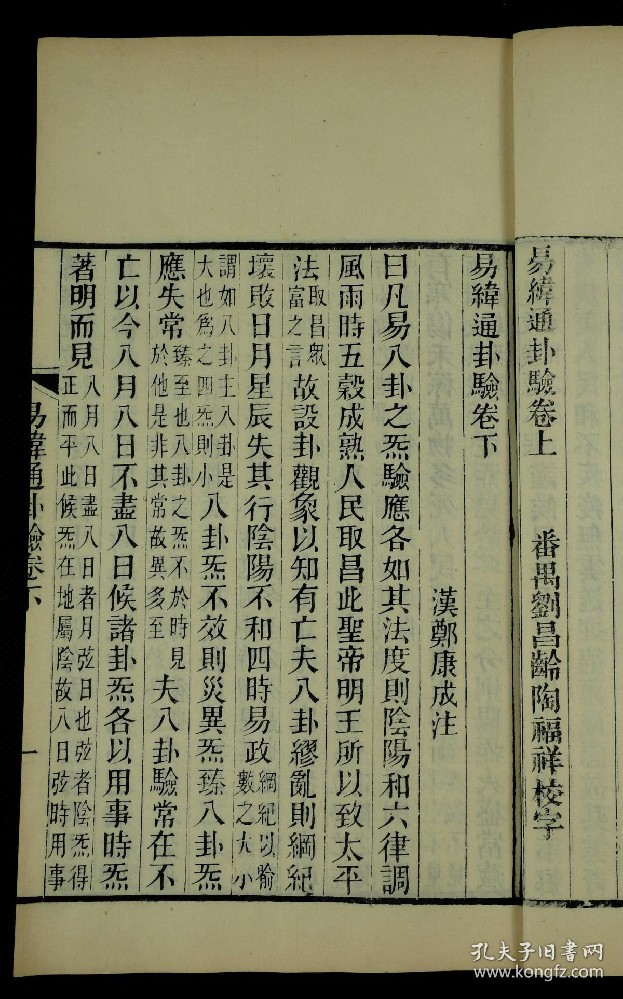 易緯通卦驗卷上　番禺劉昌齡陶福祥校字
易緯通卦驗卷下
漢鄭康成注
曰凡易八卦之炁驗應各如其法度則陰陽和六律調
風雨時五穀成熟人民取昌此聖帝明王所以致太平
法取昌衆富之言故設卦觀象以知有亡夫八卦繆亂則綱紀
壞敗日月星辰失其行陰陽不和四時易政綱紀以喻數之大小
謂如八卦主八卦是大也爲之四炁則小八卦炁不效則災異炁臻八卦炁
應失常臻至也八卦之炁不於時見於他是非其常故異多至夫八卦驗常在不
亡以今八月八日不盡八日候諸卦炁各以用事時炁
著明而見八月八日盡八日者月弦日也弦者陰炁得正而平此候炁在地屬陰故八日弦時用事
易緯通卦驗卷下
一
孔夫子旧书网
www.kongfz.com